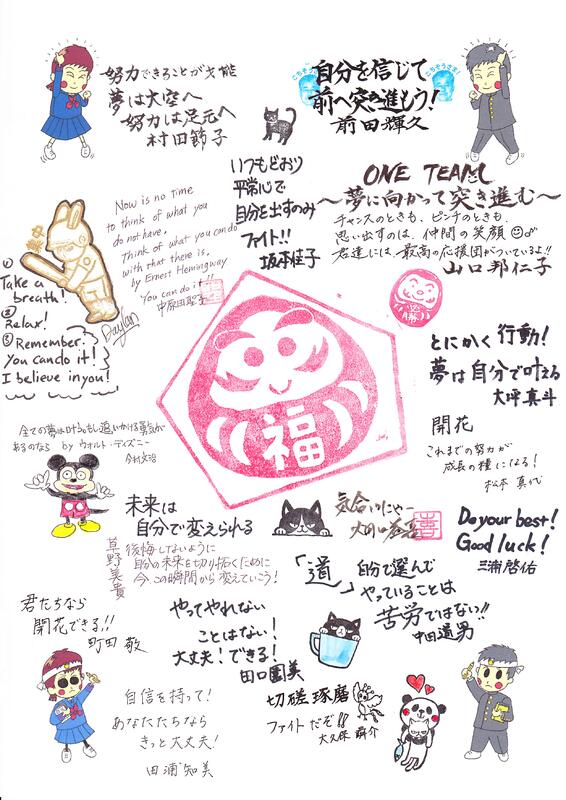 努力できることが才能
夢は大空へ
努力は足元へ
村田節子
ごちそうさま!
自分を信じて
前へ突き進もう!
前田輝久
いつもどおり
平常心で
自分を出すのみ
ファイト!!
坂本佳子
ONE TEAM
〜夢に向かって突き進む〜
チャンスのときも、ピンチのときも、
思い出すのは、仲間の笑顔
君達には、最高の応援団がついているよ!!
山口邦仁子
Now is no time
to think of what you
do not have.
Think of what you can do
with that there is,
by Ernest Hemingway
You can do it!!
① Take a
breath!
② Relax!
③ Remember:
You can do it!
I believe in you!
Daylan
必勝
福
とにかく行動!
夢は自分で叶える
大坪真斗
開花
これまでの努力が
成長の種になる!
全ての夢は叶う。もし追いかける勇気が
あるのなら by ウォルト・ディズニー
未来は
自分で変えられる
草野美貴
後悔しないように
自分の未来を切り拓くために
今この瞬間から変えていこう!
気合いにゃー
Do your best!
Good luck!
三浦啓佑
君たちなら
開花できる!!
町田 敬
やってやれない
ことはない!
大丈夫!できる!
田口園美
「道」
自分で選んで
やっていることは
苦労ではない!!
中田道男
自信を持って!
あなたたちなら
きっと大丈夫!
田浦知美
切磋琢磨
ファイトだぞ!!